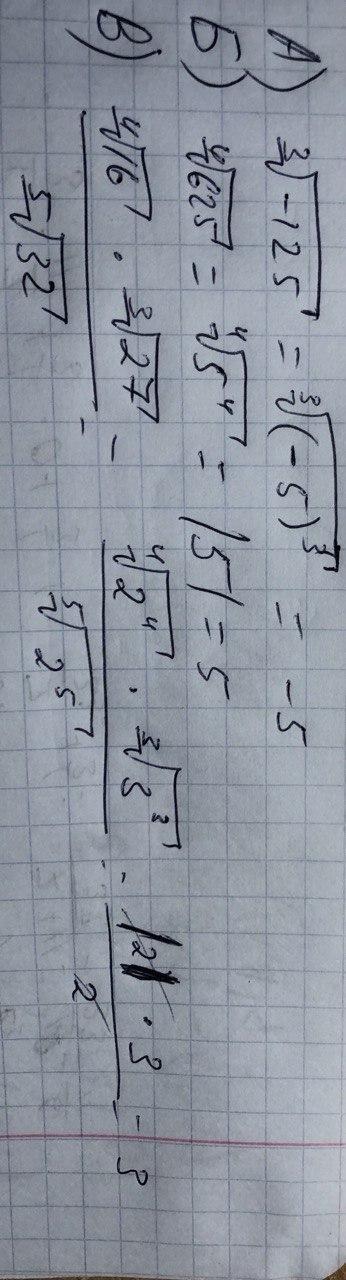 А) ∛(-125) = ∛((-5)³) = -5
Б) ∜625 = ∜(5⁴) = |5| = 5
В) (∜16 · ∛27) / ⁵√32 = (∜(2⁴) · ∛(3³)) / ⁵√(2⁵) = (|2| · 3) / 2 = 3